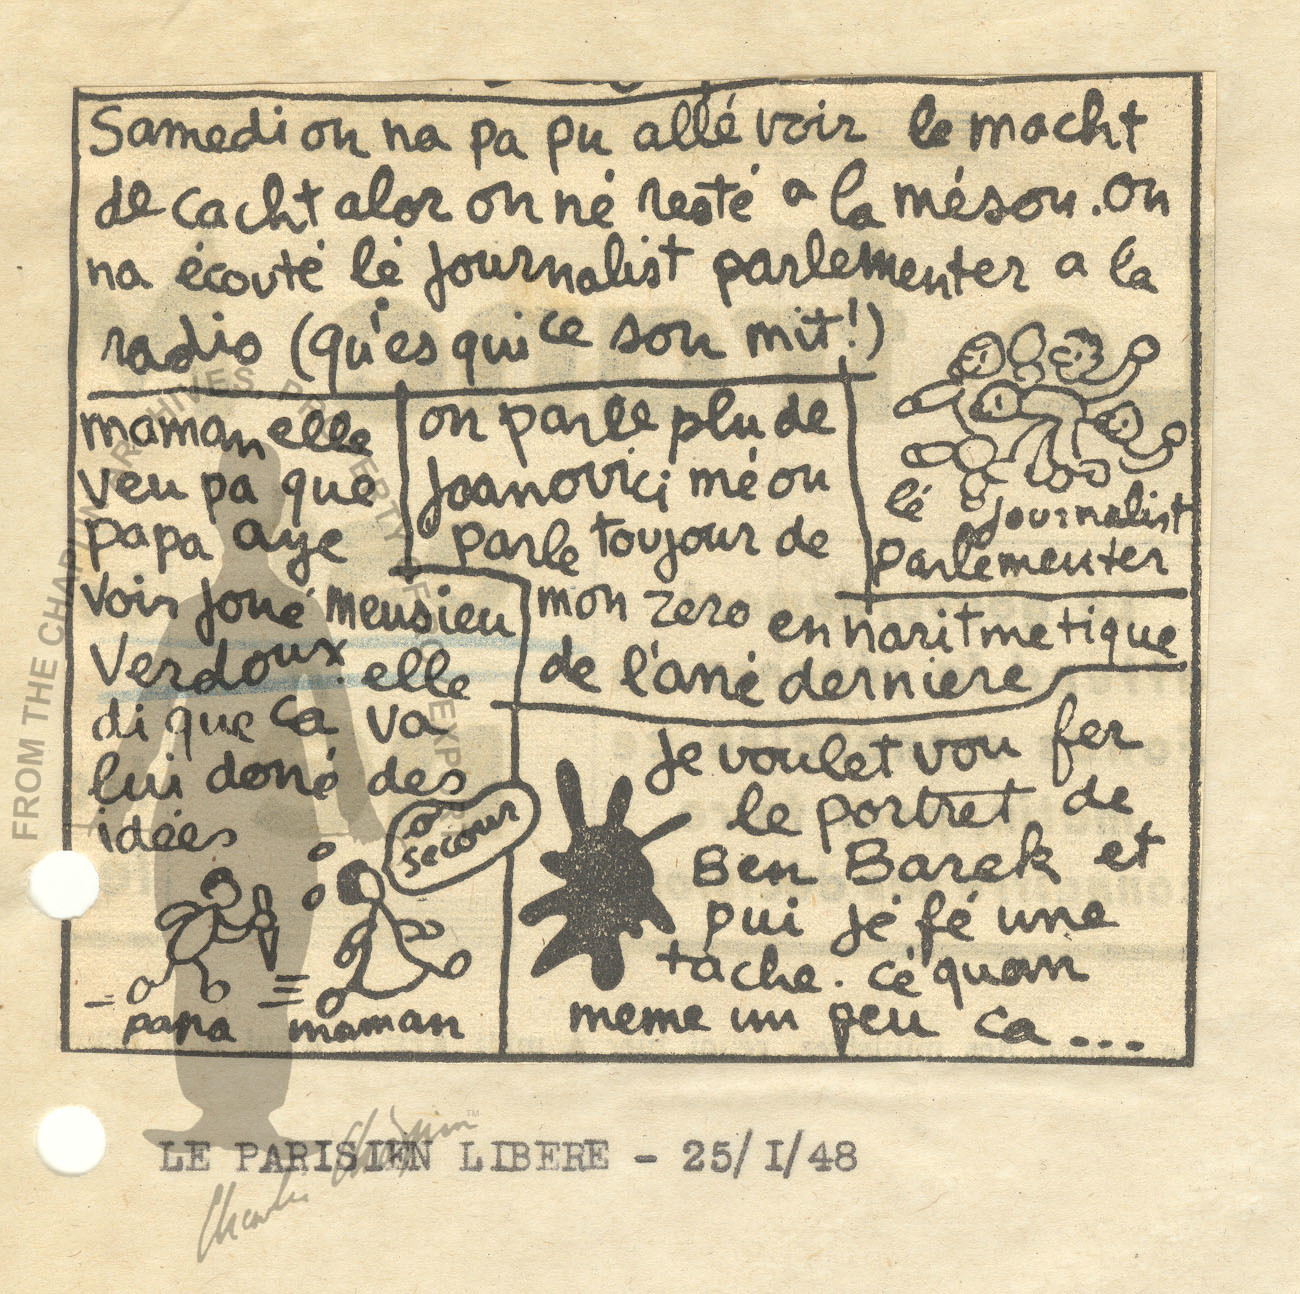 Samedi on na pa pu allé voir le macht
de cacht alor on né resté a la méson. on
na écouté lé journalist parlementer a la
radio (qu'es qui ce son mit!)
maman elle
veu pa que
papa aye
voir joué meusieu
Verdoux. elle
di que ca va
lui doné des
idées
o
secour
papa maman
on parle plu de
Joanovici mé on
parle toujour de
mon zero en naritmetique
de l'ané derniere
lé journalist
parlementer
je voulet vou fer
le portret de
Ben Barek et
pui jé fé une
tache. cé quan
meme un peu ca...
LE PARISIEN LIBERE - 25/I/48
FROM THE CHAPLIN ARCHIVES, PROPERTY OF ROY EXPORT
Charlie Chaplin™